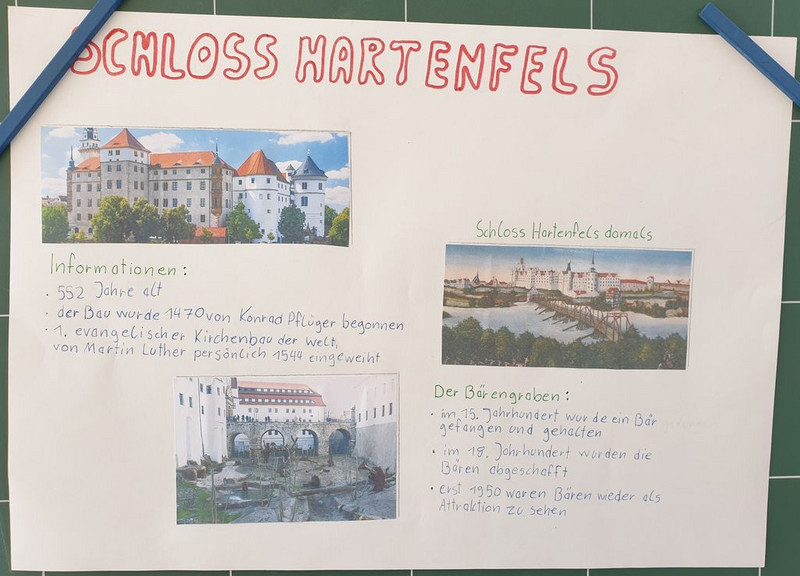 SCHLOSS HARTENFELS
Schloss Hartenfels damals
Informationen:
· 552 Jahre alt
· der Bau wurde 1470 von Konrad Pflüger begonnen
· 1. evangelischer Kirchenbau der Welt,
von Martin Luther persönlich 1544 eingeweiht
Der Bärengraben:
· im 15. Jahrhundert wurde ein Bär
gefangen und gehalten
· im 18. Jahrhundert wurden die
Bären abgeschafft
· erst 1950 waren Bären wieder als
Attraktion zu sehen